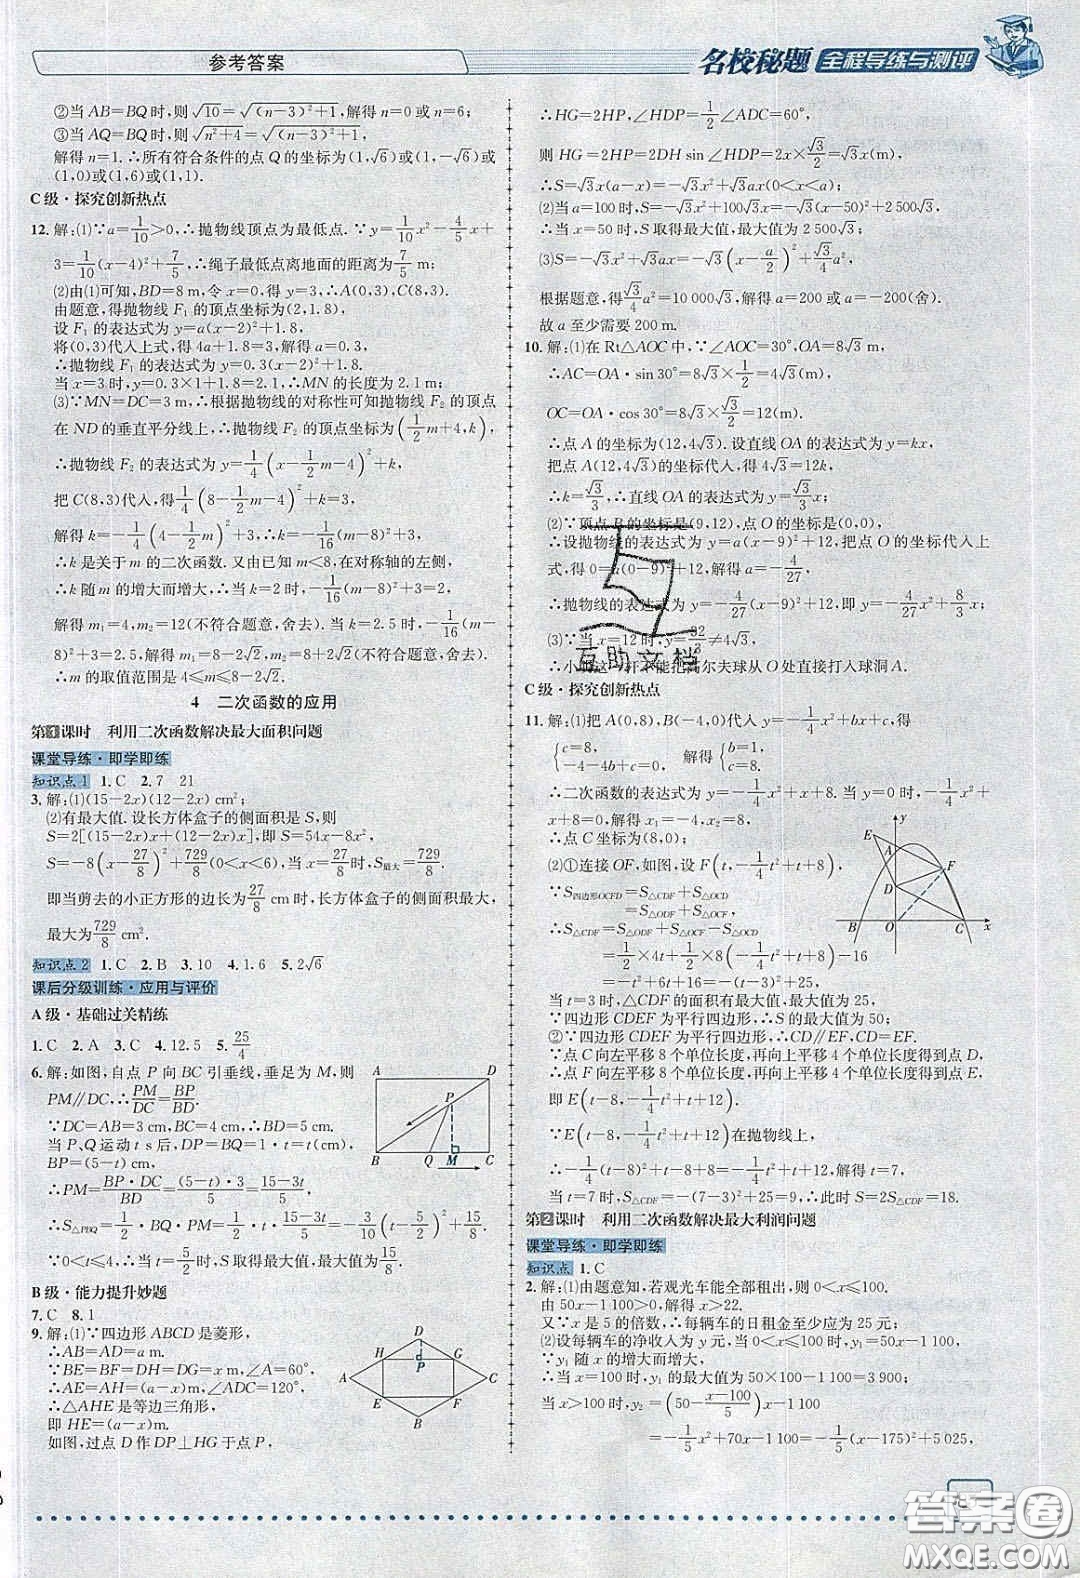 参考答案
名校秘题 全程导练与测评
②当AB=BQ时,则√10=√((n-3)²+1),解得n=0或n=6;
③当AQ=BQ时,则√(n²+4)=√((n-3)²+1),
解得n=1.∴所有符合条件的点Q的坐标为(1,√6)或(1,-√6)或
(1,0)或(1,6)或(1,1).
C级·探究创新热点
12.解:(1)∵a=1/10>0,∴抛物线顶点为最低点.∵y=1/10x²-4/5x+
3=1/10(x-4)²+7/5,∴绳子最低点离地面的距离为7/5 m;
(2)由(1)可知,BD=8 m,令x=0.得y=3,∴A(0,3),C(8,3).
由题意,得抛物线F₁的顶点坐标为(2,1.8),
设F₁的表达式为y=a(x-2)²+1.8,
将(0,3)代入上式,得4a+1.8=3,解得a=0.3,
∴抛物线F₁的表达式为y=0.3(x-2)²+1.8.
当x=3时,y=0.3×1+1.8=2.1,∴MN的长度为2.1 m;
(3)∵MN=DC=3 m,∴根据抛物线的对称性可知抛物线F₂的顶点
在ND的垂直平分线上,∴抛物线F₂的顶点坐标为(1/2m+4,k),
∴抛物线F₂的表达式为y=1/4(x-1/2m-4)²+k,
把C(8,3)代入,得1/4(8-1/2m-4)²+k=3,
解得k=-1/4(4-1/2m)²+3=-1/16(m-8)²+3,
∴k是关于m的二次函数.又已知m<8,在对称轴的左侧,
∴k随m的增大而增大,∴当k=2时,-1/16(m-8)²+3=2,
解得m₁=4,m₂=12(不符合题意,舍去).当k=2.5时,-1/16(m-
8)²+3=2.5,解得m₁=8-2√2,m₂=8+2√2(不符合题意,舍去).
∴m的取值范围是4≤m≤8-2√2.
4 二次函数的应用
第1课时 利用二次函数解决最大面积问题
课堂导练·即学即练
知识点1 1.C 2.7 21
3.解:(1)(15-2x)(12-2x) cm²;
(2)有最大值.设长方体盒子的侧面积是S,则
S=2[(15-2x)x+(12-2x)x],即S=54x-8x².
S=-8(x-27/8)²+729/8(0<x<6),当x=27/8时,S最大=729/8.
即当剪去的小正方形的边长为27/8 cm时,长方体盒子的侧面积
最大为729/8 cm².
知识点2 1.C 2.B 3.10 4.1.6 5.2√6
课后分级训练·应用与评价
A级·基础过关精练
1.C 2.A 3.C 4.12.5 5.25/4
6.解:如图,自点P向BC引垂线,垂足为M,则
PM∥DC,∴PM/DC=BP/BD.
∵DC=AB=3 cm,BC=4 cm,∴BD=5 cm.
当P、Q运动t s后,DP=BQ=1·t=t(cm),
BP=(5-t) cm,
∴PM=BP·DC/BD=(5-t)·3/5=(15-3t)/5,
∴S△PBQ=1/2·BQ·PM=1/2·t·(15-3t)/5=-3/10(t-5/2)²+15/8.
∵0<t≤5,∴当t=5/2时,S取得最大值,最大值为15/8.
A D P B Q M C
B级·能力提升妙题
7.C 8.1
9.解:(1)∵四边形ABCD是菱形,
∴AB=AD=a m.
∵BE=BF=DH=DG=x m,∠A=60°,
∴AE=AH=(a-x) m,∠ADC=120°,
∴△AHE是等边三角形,
即HE=(a-x) m.
如图,过点D作DP⊥HG于点P,
D H G P A C E F B
∴HG=2HP,∠HDP=1/2∠ADC=60°,
则HG=2HP=2DH sin∠HDP=2x×√3/2=√3x(m),
∴S=√3x(a-x)=-√3x²+√3ax(0<x<a);
(2)当a=100时,S=-√3x²+100√3x=-√3(x-50)²+2 500√3,
∴当x=50时,S取得最大值,最大值为2 500√3;
(3)S=-√3x²+√3ax=-√3(x-a/2)²+√3/4a²,
根据题意,得√3/4a²=10 000√3,解得a=200或a=-200(舍).
故a至少需要200 m.
10.解:(1)在Rt△AOC中,∵∠AOC=30°,OA=8√3 m,
∴AC=OA·sin 30°=8√3×1/2=4√3(m),
OC=OA·cos 30°=8√3×√3/2=12(m).
∴点A的坐标为(12,4√3).设直线OA的表达式为y=kx,
把点A(12,4√3)的坐标代入,得4√3=12k,
∴k=√3/3,∴直线OA的表达式为y=√3/3x;
(2)∵顶点B的坐标是(9,12),点O的坐标为(0,0),
∴设抛物线的表达式为y=a(x-9)²+12,把点O的坐标代入上
式,得0=a(0-9)²+12,解得a=-4/27,
∴抛物线的表达式为y=-4/27(x-9)²+12,即y=-4/27x²+8/3x;
(3)∵当x=12时,y=32/3≠4√3,
∴小明这一杆不能把高尔夫球从O处直接打入球洞A.
C级·探究创新热点
11.解:(1)把A(0,8),B(-4,0)代入y=-1/4x²+bx+c,得
{c=8, -4-4b+c=0, 解得{b=1, c=8,
∴二次函数的表达式为y=-1/4x²+x+8.当y=0时,-1/4x²+
x+8=0,解得x₁=-4,x₂=8,
∴点C坐标为(8,0);
(2)①连接OF,如图,设F(t,-1/4t²+t+8),
∵S四边形OCFD=S△CDF+S△OCD
=S△ODF+S△OCF,
∴S△CDF=S△ODF+S△OCF-S△OCD
=1/2×4×t+1/2×8×(-1/4t²+t+8)-1/2×4×8
=-t²+6t+16=-(t-3)²+25.
当t=3时,△CDF的面积有最大值,最大值为25,
∵四边形CDEF为平行四边形,∴S的最大值为50;
②∵四边形CDEF为平行四边形,∴CD∥EF,CD=EF.
∵点C向左平移8个单位长度,再向上平移4个单位长度得到点D,
∴点F向左平移8个单位长度,再向上平移4个单位长度得到点E,
即E(t-8,-1/4t²+t+12).
∵E(t-8,-1/4t²+t+12)在抛物线上,
∴-1/4(t-8)²+t-8+8=-1/4t²+t+12,解得t=7.
当t=7时,S△CDF=-(7-3)²+25=9,∴此时S=2S△CDF=18.
y E A F D B O C x
第2课时 利用二次函数解决最大利润问题
课堂导练·即学即练
知识点 1.C
2.解:(1)由题意知,若观光车能全部租出,则0<x≤100.
由50x-1 100>0,解得x>22.
又∵x是5的倍数,∴每辆车的日租金至少应为25元;
(2)设每辆车的净收入为y元,当0<x≤100时,y₁=50x-1 100.
∵y₁随x的增大而增大,
∴当x=100时,y₁的最大值为50×100-1 100=3 900;
当x>100时,y₂=(50-(x-100)/5)x-1 100
=-1/5x²+70x-1 100=-1/5(x-175)²+5 025,
互助文档
答案圈
MXQE.COM